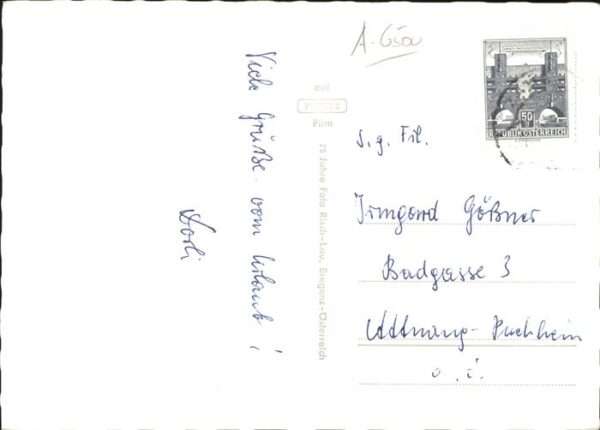 Viele Grüße vom Urlaub!
Dorli
A-6500
auf
Film
75 Jahre Foto Risch-Lau, Bregenz-Österreich
50
REPUBLIK ÖSTERREICH
S. g. Frl.
Irmgard Gößner
Badgasse 3
Attnang-Puchheim
O. Ö.